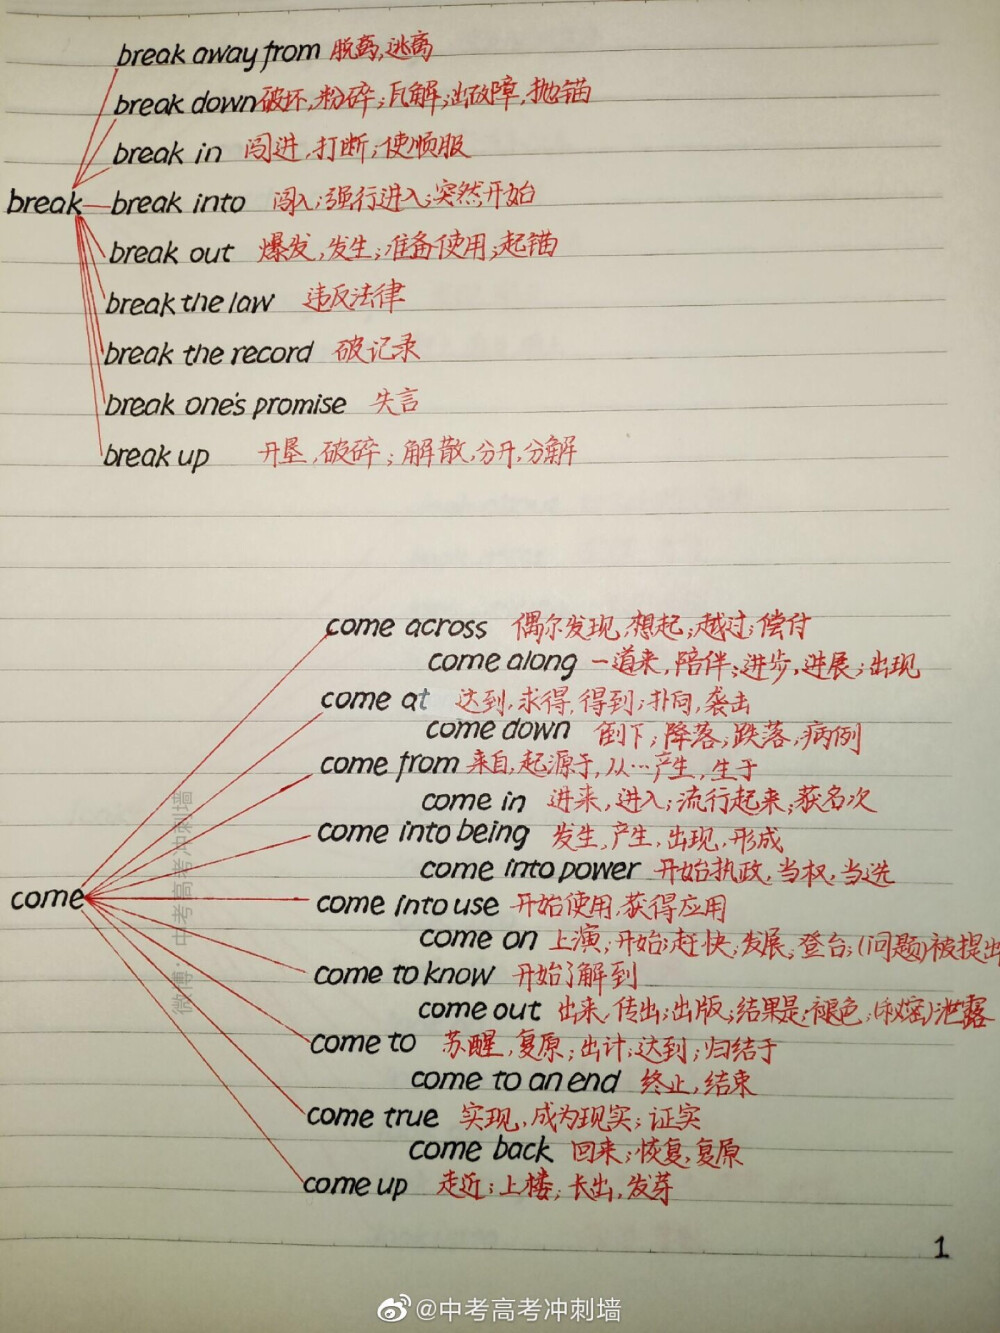 break away from 脱离,逃离
break down破坏,粉碎;瓦解;出故障,抛锚
break in 闯进,打断;使顺服
break
break into 闯入;强行进入;突然开始
break out 爆发,发生;准备使用;起锚
break the law 违反法律
break the record 破记录
break one's promise 失言
break up 开垦,破碎;解散,分开,分解
come across 偶尔发现,想起;越过;偿付
come along 一道来,陪伴;进步,进展;出现
come at 达到,求得,得到;扑向,袭击
come down 倒下;降落;跌落;病例
come from 来自,起源于,从…产生,生于
come in 进来,进入;流行起来;获名次
come into being 发生,产生,出现,形成
come into power 开始执政,当权,当选
come
come into use 开始使用,获得应用
come on 上演;开始;赶快;发展;登台;(问题)被提出
come to know 开始了解到
come out 出来,传出;出版;结果是;褪色;(秘密)泄露
come to 苏醒,复原;出计;达到;归结于
come to an end 终止,结束
come true 实现,成为现实;证实
come back 回来;恢复,复原
come up 走近;上楼;长出,发芽
1
微博·中考高考冲刺墙
@中考高考冲刺墙